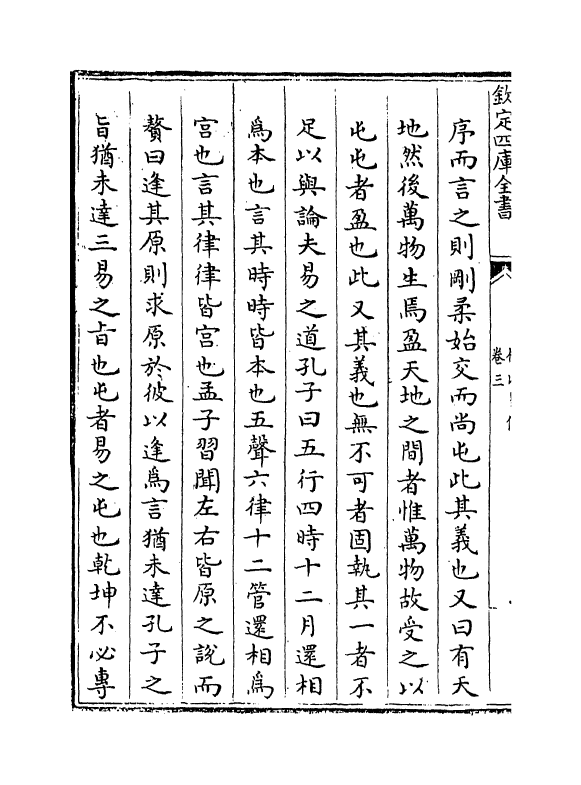 欽定四庫全書
卷三
序而言之則剛柔始交而尚屯此其義也又曰有天
地然後萬物生焉盈天地之間者惟萬物故受之以
屯屯者盈也此又其義也無不可者固執其一者不
足以與論夫易之道孔子曰五行四時十二月還相
爲本也言其時時皆本也五聲六律十二管還相爲
宮也言其律律皆宮也孟子習聞左右皆原之說而
贅曰逢其原則求原於彼以逢爲言猶未達孔子之
旨猶未達三易之旨也屯者易之屯也乾坤不必專